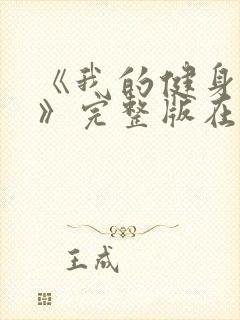 《我的健身
》完整版在
王成